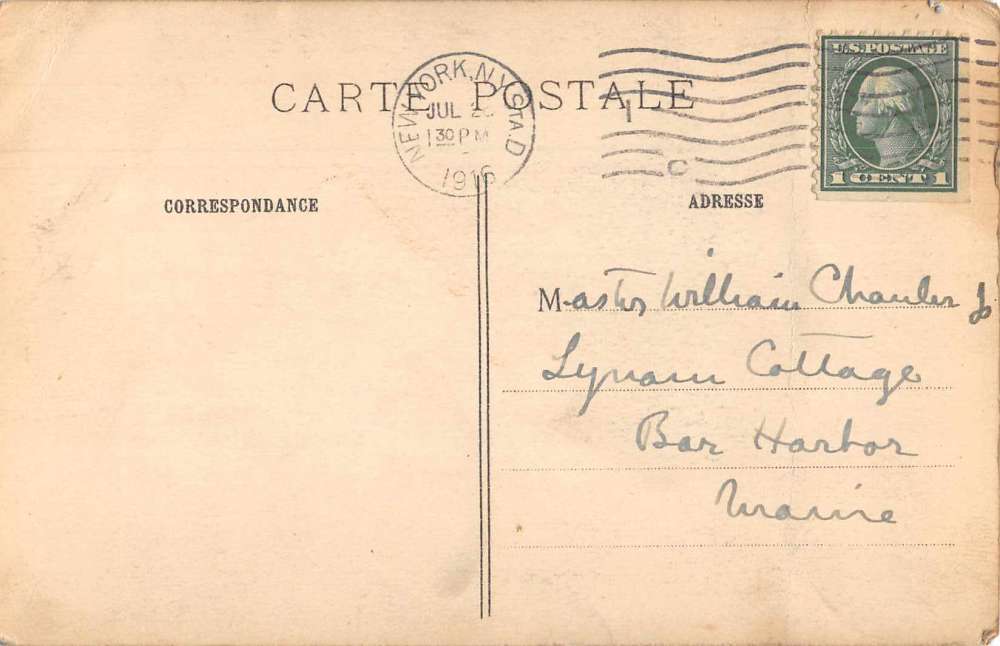 CARTE POSTALE
NEW YORK, N.Y. STA. D
JUL
1 30 PM
1916
U.S. POSTAGE
1 CENT 1
CORRESPONDANCE
ADRESSE
Master William Chanler Jr
Lynam Cottage
Bar Harbor
Maine